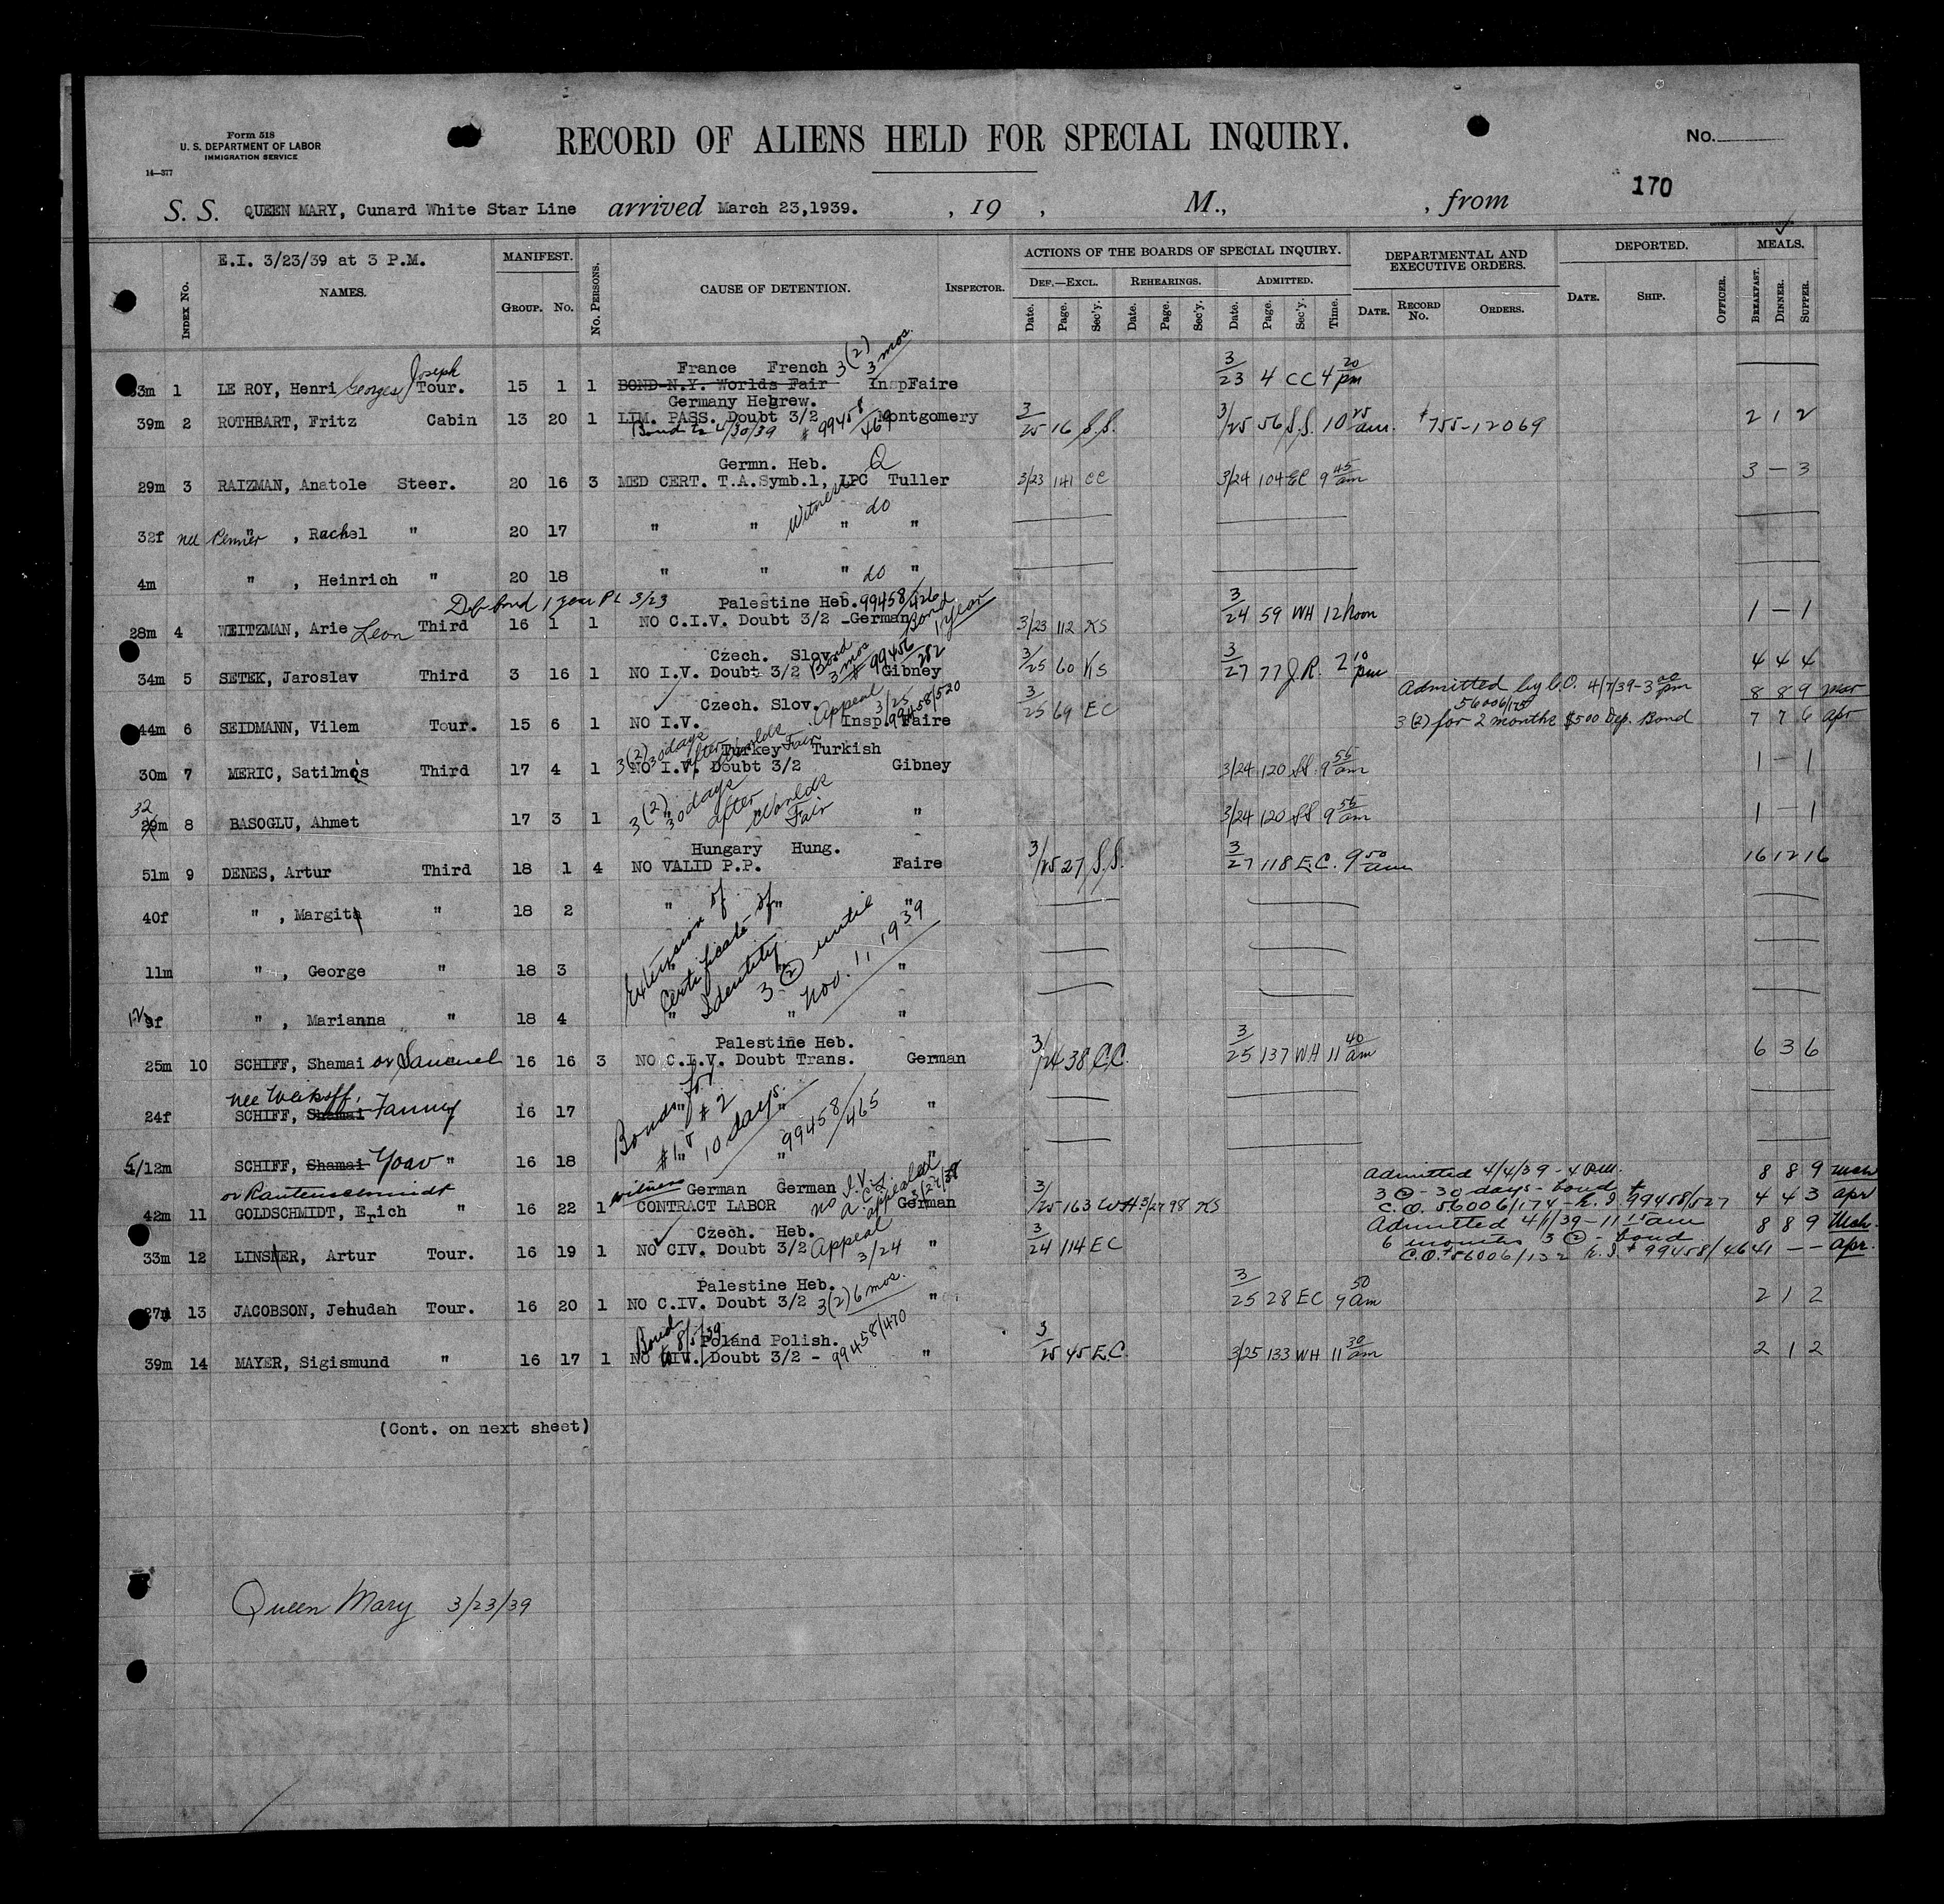 Form 518
U. S. DEPARTMENT OF LABOR
IMMIGRATION SERVICE
14—377
RECORD OF ALIENS HELD FOR SPECIAL INQUIRY.
No.
170
S. S. QUEEN MARY, Cunard White Star Line arrived March 23,1939. , 19 , M., , from
E.I. 3/23/39 at 3 P.M.
INDEX No. NAMES. MANIFEST. GROUP. No. No. PERSONS. CAUSE OF DETENTION. INSPECTOR.
ACTIONS OF THE BOARDS OF SPECIAL INQUIRY. DEF.—EXCL. REHEARINGS. ADMITTED.
Date. Page. Sec'y. Date. Page. Sec'y. Date. Page. Sec'y. Time.
DEPARTMENTAL AND EXECUTIVE ORDERS. DATE. RECORD No. ORDERS.
DEPORTED. DATE. SHIP. OFFICER. MEALS. BREAKFAST. DINNER. SUPPER.
Joseph France French 3(2) 3 mos.
33m 1 LE ROY, Henri Georges Tour. 15 1 1 BOND-N.Y. Worlds Fair InspFaire 3/23 4 CC 4 20 pm
Germany Hebrew.
39m 2 ROTHBART, Fritz Cabin 13 20 1 LIM. PASS. Doubt 3/2 Montgomery 3/25 16 S.S. 3/25 56 S.S. 10 25 am. 755-12069 2 1 2
Bond to 4/30/39 # 99458/469
Germn. Heb.
29m 3 RAIZMAN, Anatole Steer. 20 16 3 MED CERT. T.A.Symb.1, LPC Tuller 3/23 141 CC 3/24 104 EC 9 45 am 3 — 3
Witness do
32f nee Penner " , Rachel " 20 17 " " " "
4m " , Heinrich " 20 18 " " " do "
Def bond 1 year PL 3/23 Palestine Heb. 99458/426 Bond 1 year
28m 4 WEITZMAN, Arie Leon Third 16 1 1 NO C.I.V. Doubt 3/2 -German 3/23 112 KS 3/24 59 WH 12 Noon 1 — 1
Czech. Slov. Bond 3 mos # 99456/282
34m 5 SETEK, Jaroslav Third 3 16 1 NO I.V. Doubt 3/2 Gibney 3/25 60 KS 3/27 77 J.R. 2 10 pm 4 4 4
Czech. Slov. Appeal 3/25 99458/520 Admitted by C.O. 4/7/39-3 00 pm 8 8 9 mar
44m 6 SEIDMANN, Vilem Tour. 15 6 1 NO I.V. Insp. Faire 3/25 69 EC 56006/175 3(2) for 2 months $500 Dep. Bond 7 7 6 apr
3(2) 30 days after Worlds Fair Turkey Turkish
30m 7 MERIC, Satilmis Third 17 4 1 NO I.V. Doubt 3/2 Gibney 3/24 120 SS 9 55 am 1 — 1
32 29m 8 BASOGLU, Ahmet 17 3 1 3(2) 30 days after Worlds Fair " 3/24 120 SS 9 55 am 1 — 1
Hungary Hung.
51m 9 DENES, Artur Third 18 1 4 NO VALID P.P. Faire 3/25 27 S.S. 3/27 118 E.C. 9 50 am 16 12 16
40f " , Margit " 18 2 " " "
11m " , George " 18 3 "
12 9f " , Marianna " 18 4 " " "
Extension of Certificate of Identity 3(2) until Nov. 11, 1939
Palestine Heb.
25m 10 SCHIFF, Shamai or Samuel 16 16 3 NO C.I.V. Doubt Trans. German 3/24 38 C.C. 3/25 137 WH 11 40 am 6 3 6
nee
24f SCHIFF, Shamai Fanny 16 17 " " "
5/12m SCHIFF, Shamai Yoav " 16 18 " " "
Bonds for #1 & #2 10 days. 99458/465
or Rautenschmidt witness German German no I.V. appealed 3/27/39
42m 11 GOLDSCHMIDT, Erich " 16 22 1 CONTRACT LABOR German 3/25 163 WH 3/27 98 KS
Admitted 4/4/39 - 4 P.M. 8 8 9 mch
3(2) - 30 days - bond # 4 4 3 apr
C.O. 56006/174 - E.I. 99458/527
Czech. Heb.
33m 12 LINSNER, Artur Tour. 16 19 1 NO CIV. Doubt 3/2 Appeal 3/24 " 3/24 114 EC
Admitted 4/1/39 - 11 15 am 8 8 9 Mch.
6 months 3(2) - bond
C.O. # 56006/132 E.I. # 99458/464 1 — — apr.
Palestine Heb.
27m 13 JACOBSON, Jehudah Tour. 16 20 1 NO C.IV. Doubt 3/2 3(2) 6 mos. " 3/25 28 EC 9 50 am 2 1 2
Bond to 8/5/39 Poland Polish.
39m 14 MAYER, Sigismund " 16 17 1 NO CIV. Doubt 3/2 - 99458/470 " 3/25 45 E.C. 3/25 133 WH 11 30 am 2 1 2
(Cont. on next sheet)
Queen Mary 3/23/39